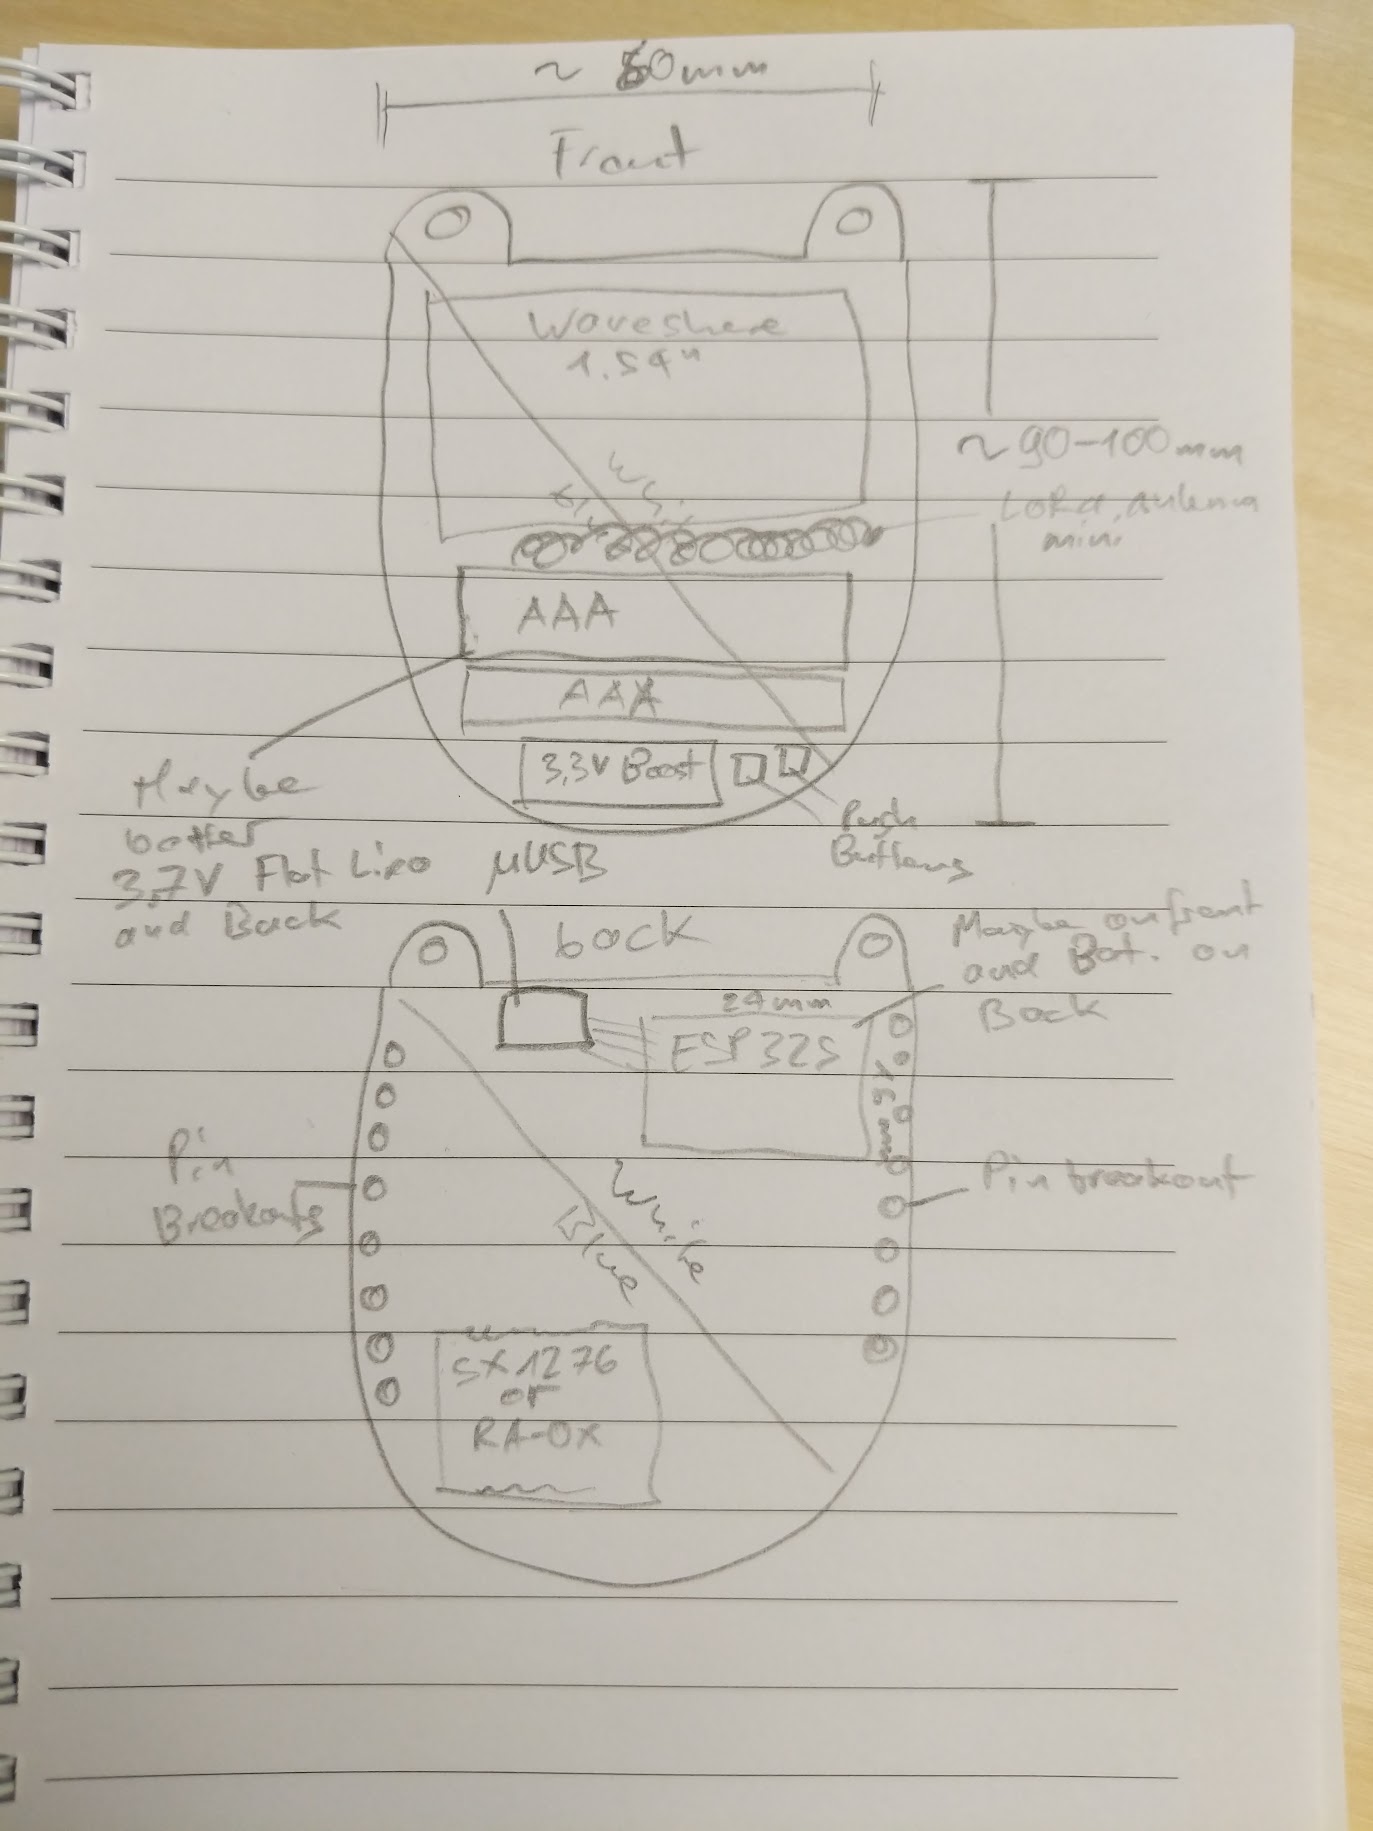 ~ 60mm
Front
Waveshare
1.54"
~90-100mm
LoRa antenna
mini
AAA
AAA
3,3V Boost
Push
Buttons
Maybe
better
3,7V Flat Lipo
and Back
µUSB
back
Maybe on front
and Bat. on
Back
24mm
ESP32S
Pin
Breakouts
Pin breakout
White
Blue
SX1276
or
RA-0X